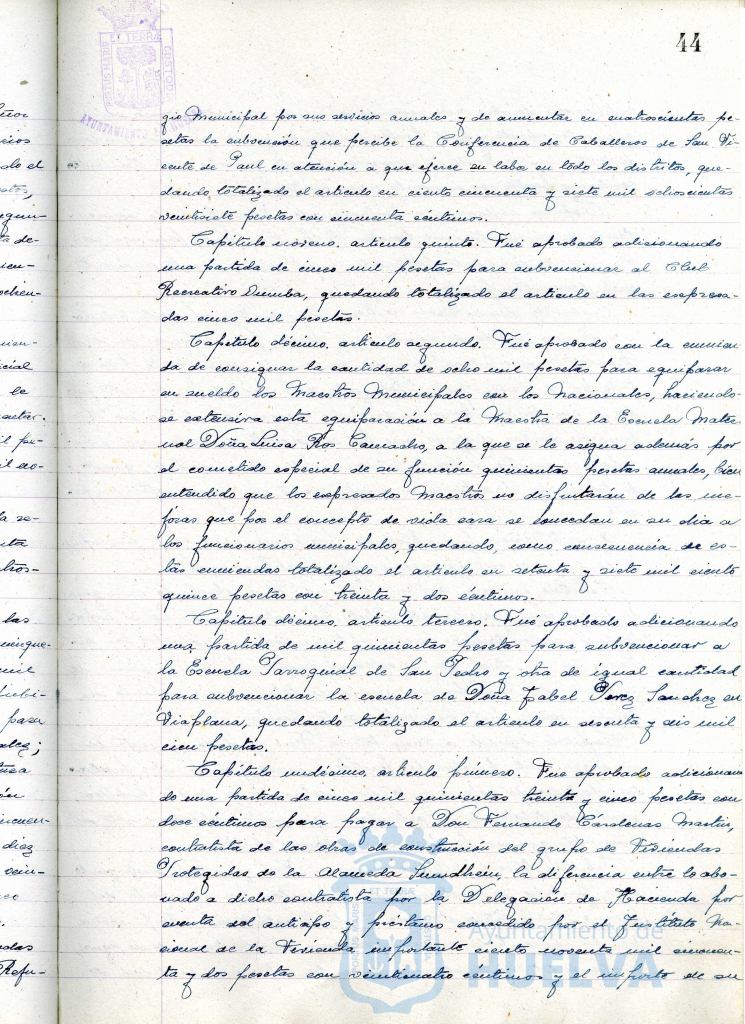 44
PORTUS MARIS ET TERRAE CUSTODIA
AYUNTAMIENTO
gio Municipal por sus servicios anuales y de aumentar en cuatrocientas pe-
setas la subvención que percibe la Conferencia de Caballeros de San Vi-
cente de Paul en atención a que ejerce su labor en todo los distritos, que-
dando totalizado el articulo en ciento cincuenta y siete mil ochocientas
veintisiete pesetas con cincuenta céntimos.
Capítulo noveno, articulo quinto. Fué aprobado adicionando
una partida de cinco mil pesetas para subvencionar al Club
Recreativo Onuba, quedando totalizado el articulo en las expresa-
das cinco mil pesetas.
Capítulo décimo, articulo segundo. Fué aprobado con la enmien-
da de consignar la cantidad de ocho mil pesetas para equiparar
en sueldo los Maestros Municipales con los Nacionales, haciendo-
se extensiva esta equiparación a la Maestra de la Escuela Mater-
nal Doña Luisa Ros Camacho, a la que se le asigna además por
el cometido especial de su función quinientas pesetas anuales, bien
entendido que los expresados Maestros no disfrutarán de las me-
joras que por el concepto de vida cara se concedan en su dia a
los funcionarios municipales, quedando, como consecuencia de es-
tas enmiendas totalizado el articulo en setenta y siete mil ciento
quince pesetas con treinta y dos céntimos.
Capítulo décimo, articulo tercero. Fué aprobado adicionando
una partida de mil quinientas pesetas para subvencionar a
la Escuela Parroquial de San Pedro y otra de igual cantidad
para subvencionar la escuela de Doña Isabel Perez Sanchez en
Viaplana, quedando totalizado el articulo en sesenta y seis mil
cien pesetas.
Capítulo undécimo, articulo primero. Fue aprobado adicionan-
do una partida de cinco mil quinientas treinta y cinco pesetas con
doce céntimos para pagar a Don Fernando Cárdenas Martin,
contratista de las obras de construcción del grupo de Viviendas
Protegidas de la Alameda Sundhein, la diferencia entre lo abo-
nado a dicho contratista por la Delegación de Hacienda por
cuenta del anticipo y préstamo concedido por el Instituto Na-
cional de la Vivienda importante ciento noventa mil cincuen-
ta y dos pesetas con veinticuatro céntimos y el importe de su
Ayuntamiento de
HUELVA